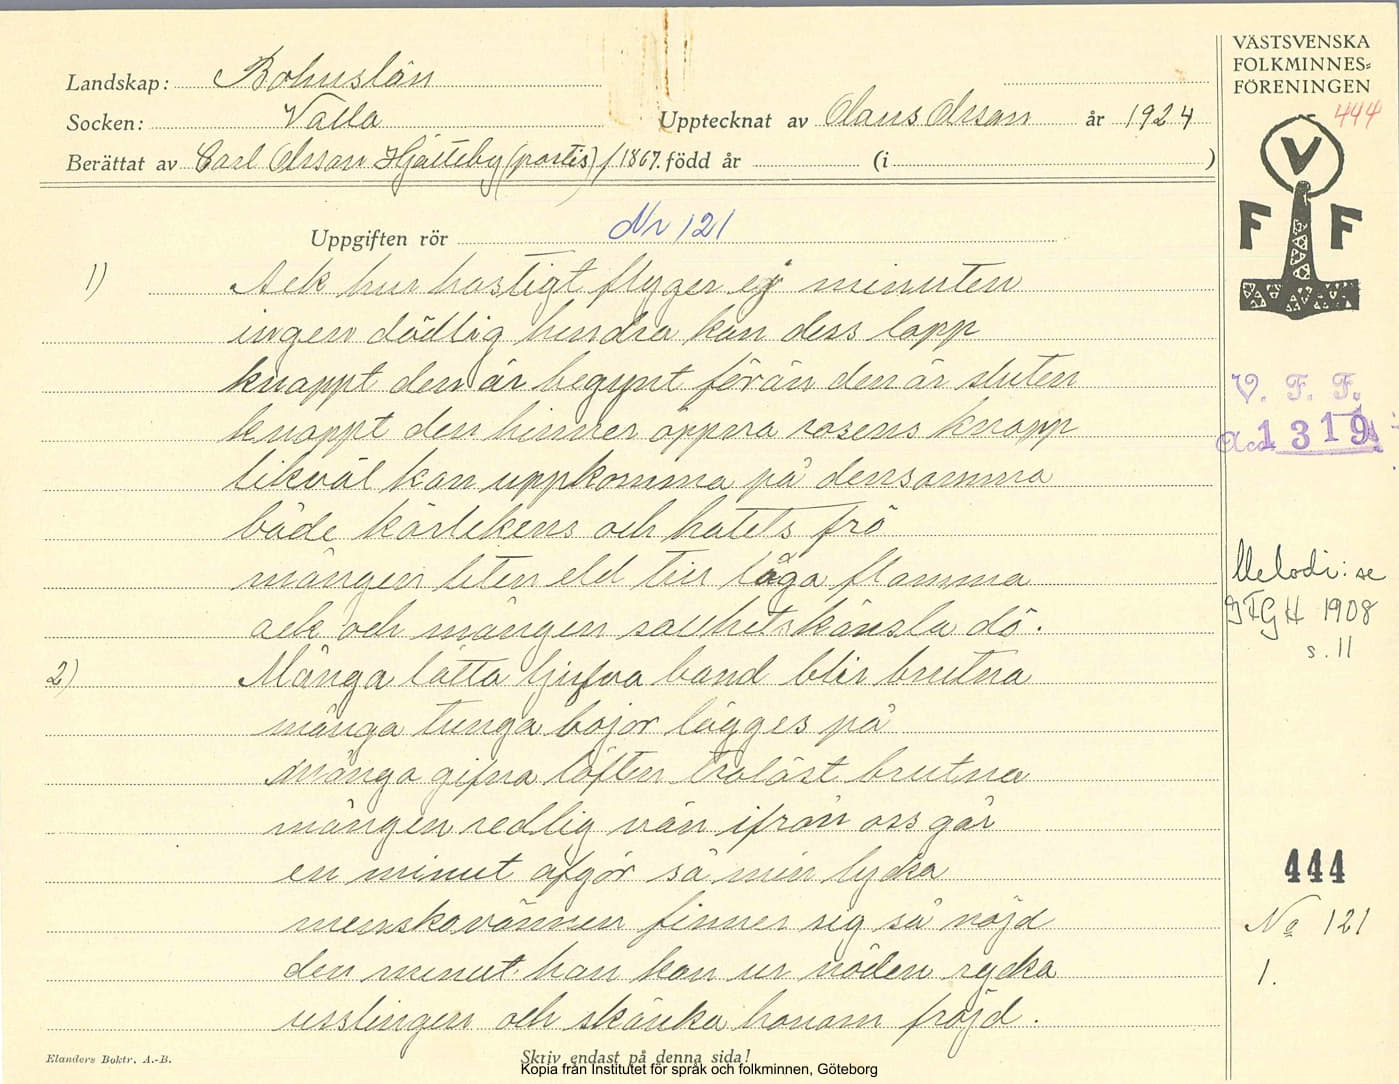 VÄSTSVENSKA
FOLKMINNES=
FÖRENINGEN
444
Landskap: Bohuslän
Socken: Valla
Upptecknat av Olaus Olsson år 1924
Berättat av Carl Olsson Hjälteby (portis) f 1867. född år (i )
V
F F
Uppgiften rör Nr 121
1) Ack hur hastigt flyger ej minuten
ingen dödlig hindra kan dess lopp
knappt den är begynt förän den är sluten
knappt den hinner öppna rosens knopp
likväl kan uppkomma på densamma
både kärlekens och hatets frö
mången liten eld till låga flamma
ack och mången sällhetskänsla dö.
2) Många lätta ljufva band blir brutna
många tunga bojor lägges på
många gifna löften trolöst brutna
mången redlig vän ifrån oss går
en minut afgör så min lycka
menskovännen finner sig så nöjd
den minut han kan ur nöden rycka
usslingen och skänka honom fröjd.
V. F. F.
Acc. 1319
Melodi: se
GFGH 1908
s. 11
444
No 121
1.
Elanders Boktr. A.-B.
Skriv endast på denna sida!
Kopia från Institutet för språk och folkminnen, Göteborg